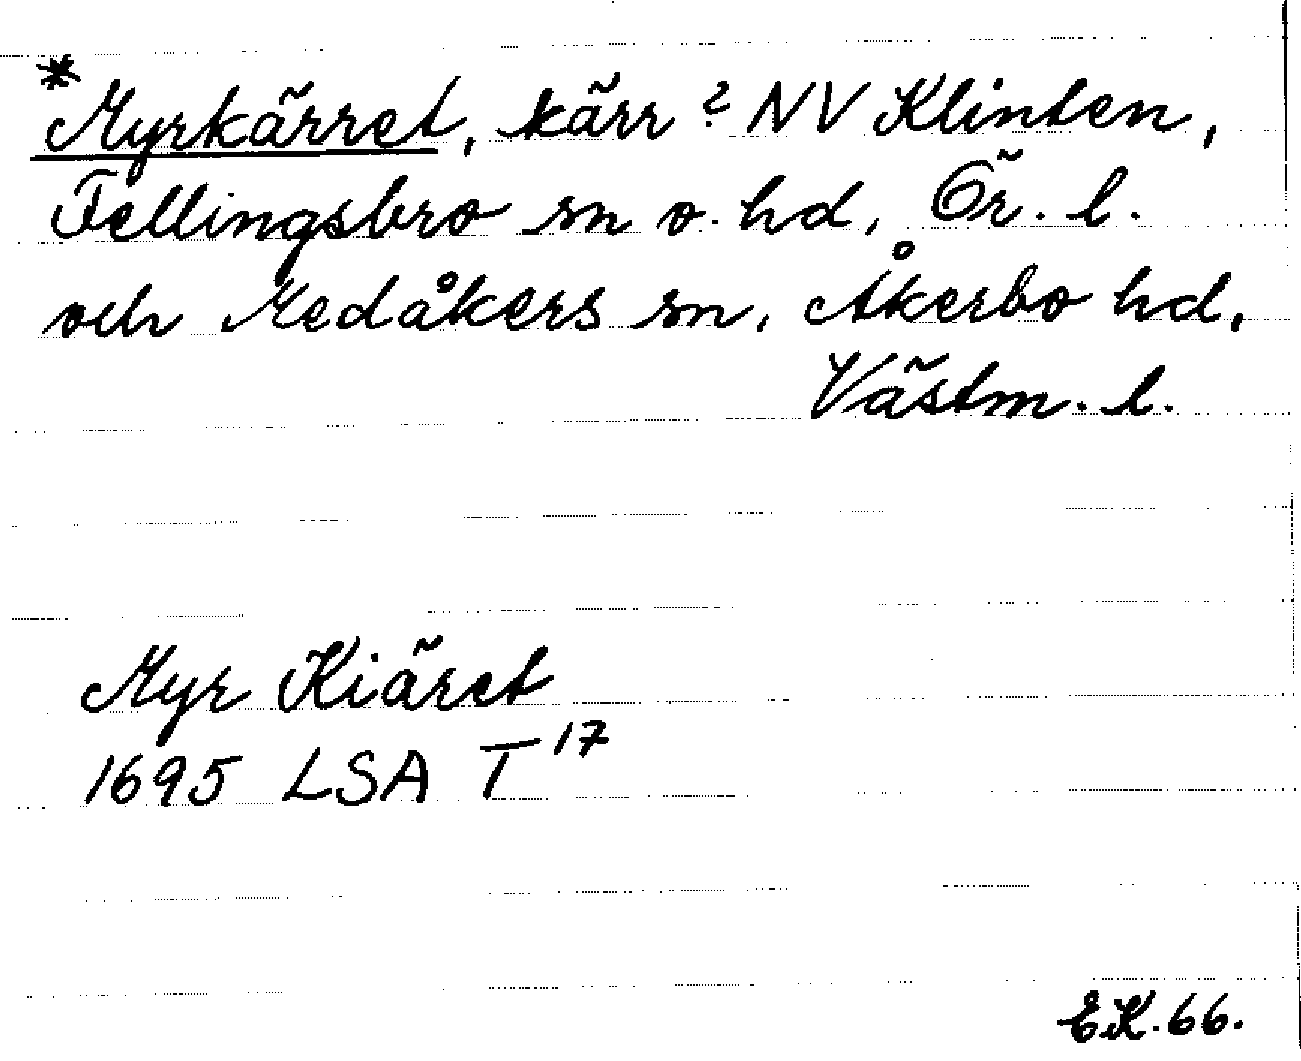 *Myrkärret, kärr? NV Klinten,
Fellingsbro sn o. hd, Ör. l.
och Medåkers sn, Åkerbo hd,
Västm. l.
Myr Kiäret
1695 LSA T 17
EK. 66.